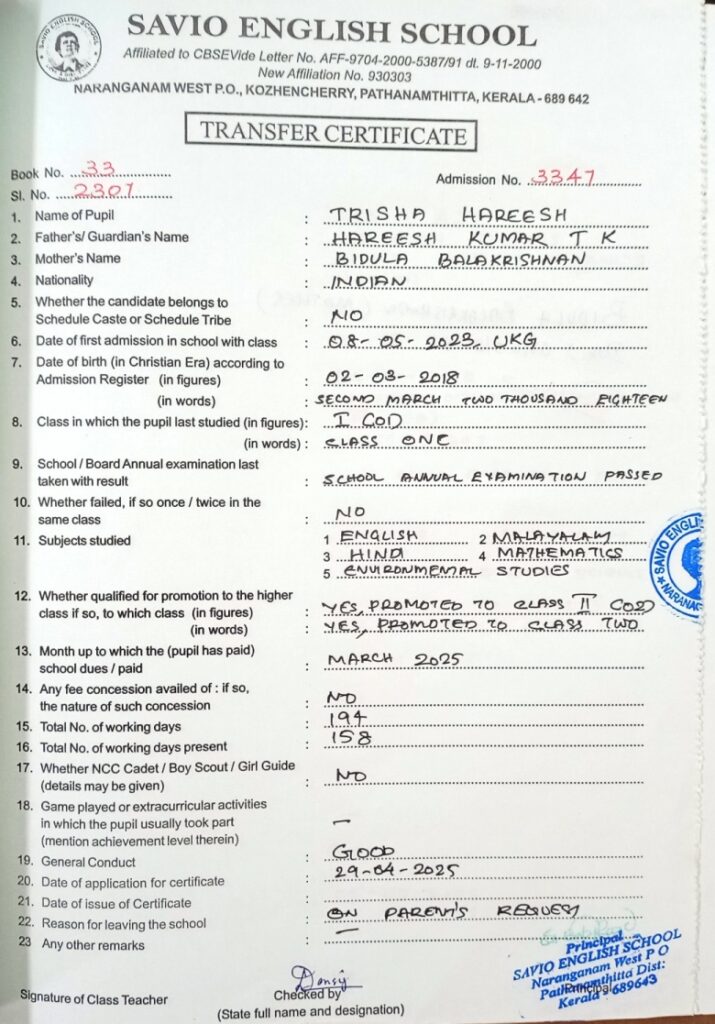 SAVIO ENGLISH SCHOOL
Affiliated to CBSEVide Letter No. AFF-9704-2000-5387/91 dt. 9-11-2000
New Affiliation No. 930303
NARANGANAM WEST P.O., KOZHENCHERRY, PATHANAMTHITTA, KERALA - 689 642
TRANSFER CERTIFICATE
Book No. 33
Admission No. 3347
Sl. No. 2301
1. Name of Pupil : TRISHA HAREESH
2. Father's/ Guardian's Name : HAREESH KUMAR T K
3. Mother's Name : BIDULA BALAKRISHNAN
4. Nationality : INDIAN
5. Whether the candidate belongs to
Schedule Caste or Schedule Tribe : NO
6. Date of first admission in school with class : 08-05-2023, UKG
7. Date of birth (in Christian Era) according to
Admission Register (in figures) : 02-03-2018
(in words) : SECOND MARCH TWO THOUSAND EIGHTEEN
8. Class in which the pupil last studied (in figures): I (OD)
(in words) : CLASS ONE
9. School / Board Annual examination last
taken with result : SCHOOL ANNUAL EXAMINATION PASSED
10. Whether failed, if so once / twice in the
same class : NO
11. Subjects studied : 1 ENGLISH 2 MALAYALAM
3 HINDI 4 MATHEMATICS
5 ENVIRONMEMAL STUDIES
12. Whether qualified for promotion to the higher
class if so, to which class (in figures) : YES, PROMOTED TO CLASS II (OD)
(in words) : YES, PROMOTED TO CLASS TWO
13. Month up to which the (pupil has paid)
school dues / paid : MARCH 2025
14. Any fee concession availed of : if so,
the nature of such concession : NO
15. Total No. of working days : 194
16. Total No. of working days present : 158
17. Whether NCC Cadet / Boy Scout / Girl Guide
(details may be given) : NO
18. Game played or extracurricular activities
in which the pupil usually took part : —
(mention achievement level therein)
19. General Conduct : GOOD
20. Date of application for certificate : 29-04-2025
21. Date of issue of Certificate :
22. Reason for leaving the school : ON PARENT'S REQUEST
23 Any other remarks : —
Principal
SAVIO ENGLISH SCHOOL
Naranganam West P O
Pathanamthitta Dist:
Kerala - 689643
Principal
Signature of Class Teacher
Checked by
(State full name and designation)
SAVIO ENGLI
NARANAG